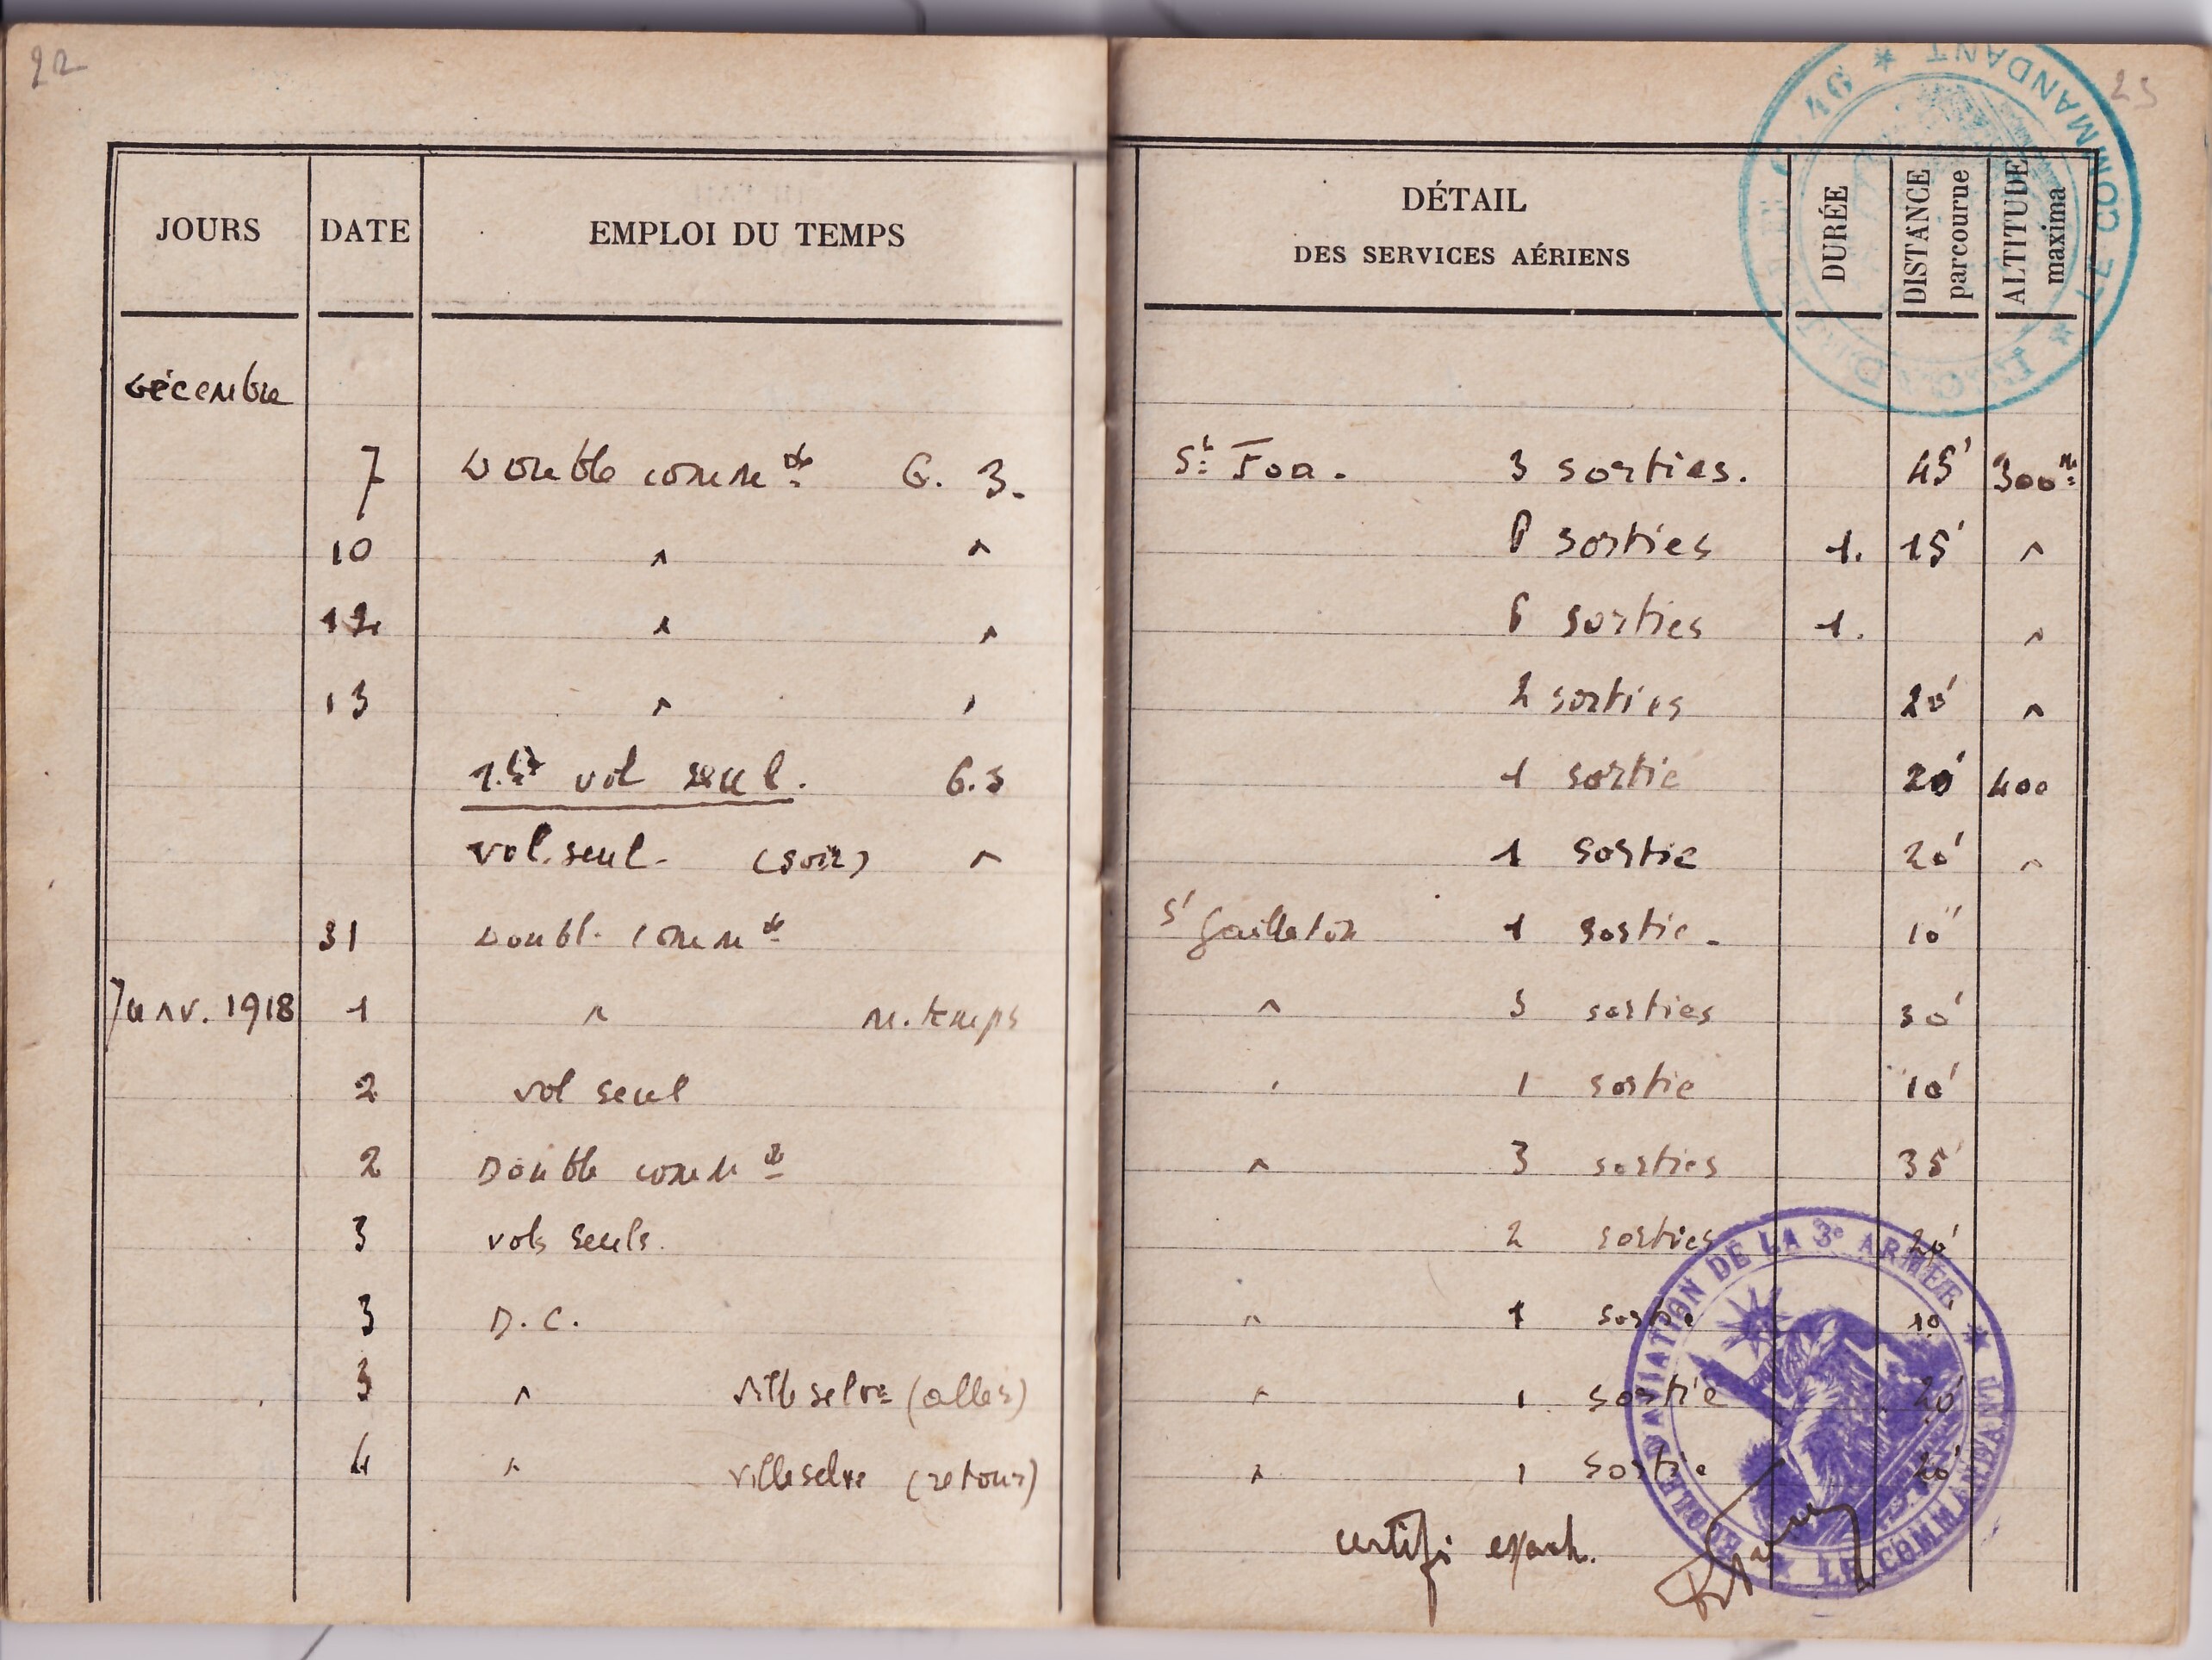 22
23
JOURS DATE EMPLOI DU TEMPS DÉTAIL DES SERVICES AÉRIENS DURÉE DISTANCE parcourue ALTITUDE maxima
46 * LE COMMANDANT *
décembre
7 Double commde G. 3. St Foa. 3 sorties. 45' 300m
10 ^ ^ 8 sorties 1. 15' ^
12 ^ ^ 6 sorties 1. ^
13 ^ ' 2 sorties 20' ^
1.er vol seul. G.3 1 sortie 20' 400
vol seul. (soir) ^ 1 sortie 20' ^
31 Doubl. commde St Gailleton 1 sortie. 10'
Janv. 1918 1 ^ m. temps ^ 3 sorties 30'
2 vol seul ' 1 sortie 10'
2 Double commde ^ 3 sorties 35'
3 vols seuls. 2 sorties 20'
3 D.C. ^ 1 sortie 10'
3 ^ villeselve (aller) ^ 1 sortie 20'
4 ^ villeselve (retour) ^ 1 sortie 20'
certifié exact.
D'AVIATION DE LA 3e ARMÉE * LE COMMANDANT *